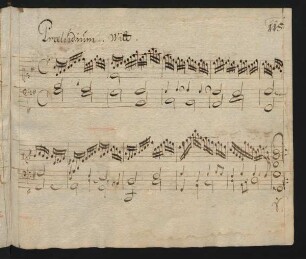 Præludium. Witt.
115.